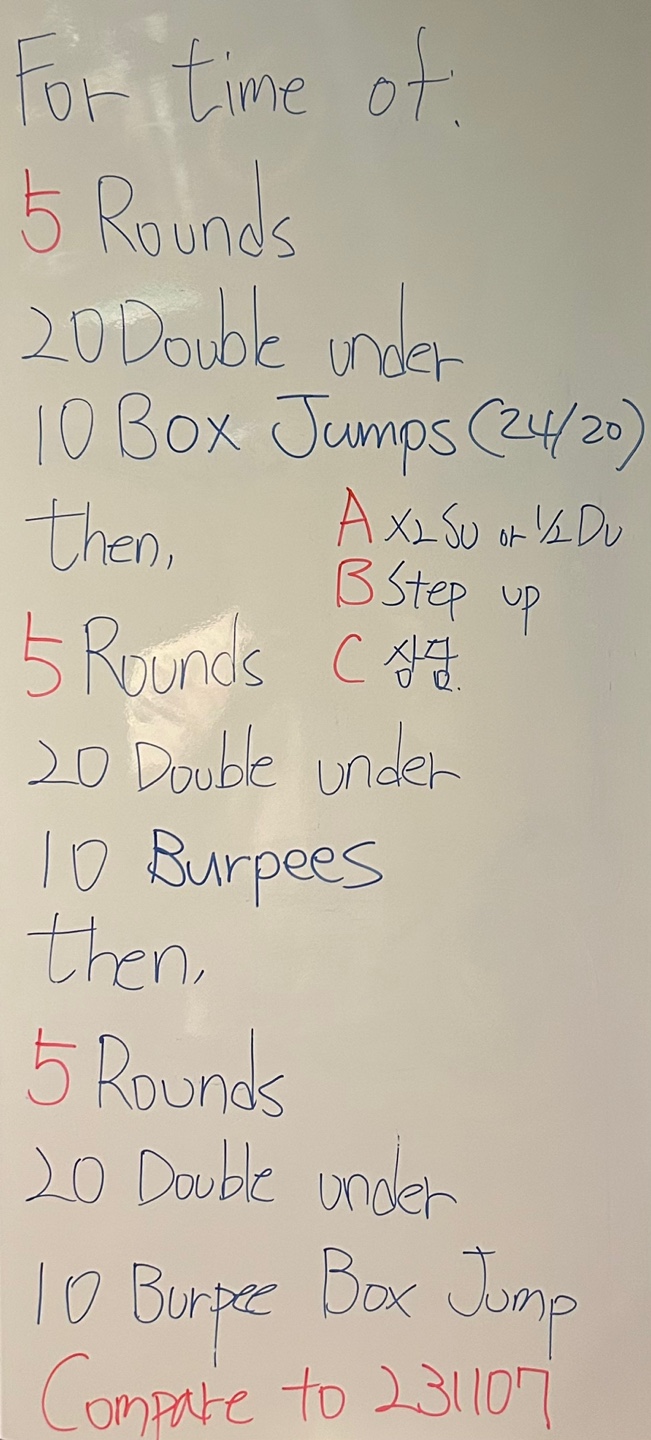 For time of:
5 Rounds
20 Double under
10 Box Jumps (24/20)
then,
A X2 SU or 1/2 DU
B Step up
C 상담.
5 Rounds
20 Double under
10 Burpees
then,
5 Rounds
20 Double under
10 Burpee Box Jump
Compare to 231107